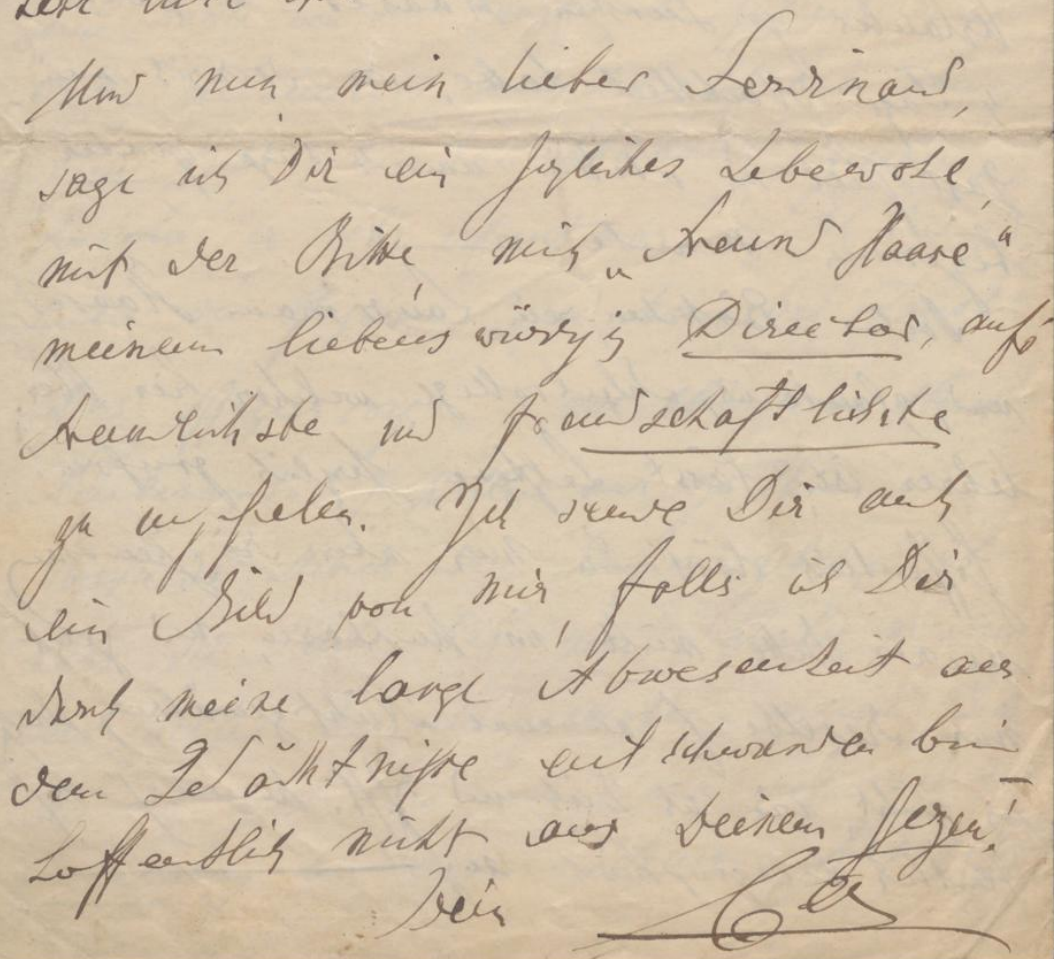 Und nun mein lieber Ferdinand,
sage ich Dir ein herzliches Lebewohl,
mit der Bitte, mich „Freund Haase“
meinem liebenswürdig Director, aufs
freundlichste und freundschaftlichste
zu empfehlen. Ich sende Dir auch
ein Bild von mir, falls ich Dir
durch meine lange Abwesenheit aus
dem Gedächtnisse entschwunden bin –
hoffentlich nicht aus Deinem Herzen!
Dein